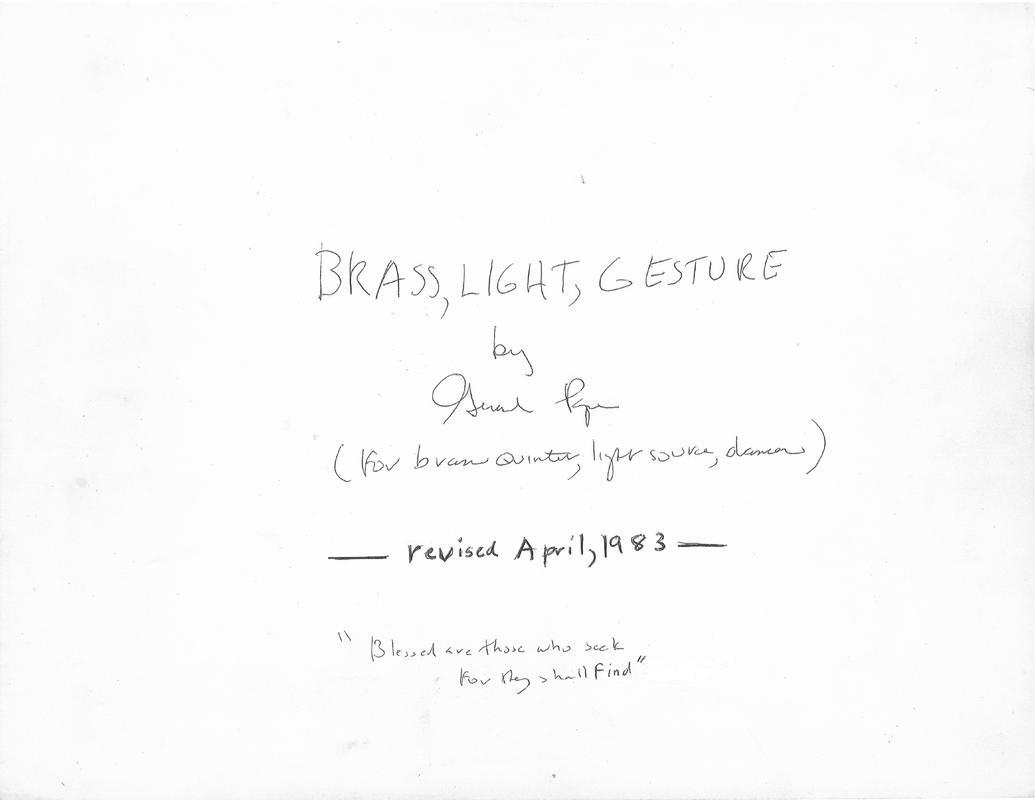 BRASS, LIGHT, GESTURE
by
Gerard Pape
(For brass quintet, light source, dancer)
— revised April, 1983 —
"Blessed are those who seek
For they shall Find"